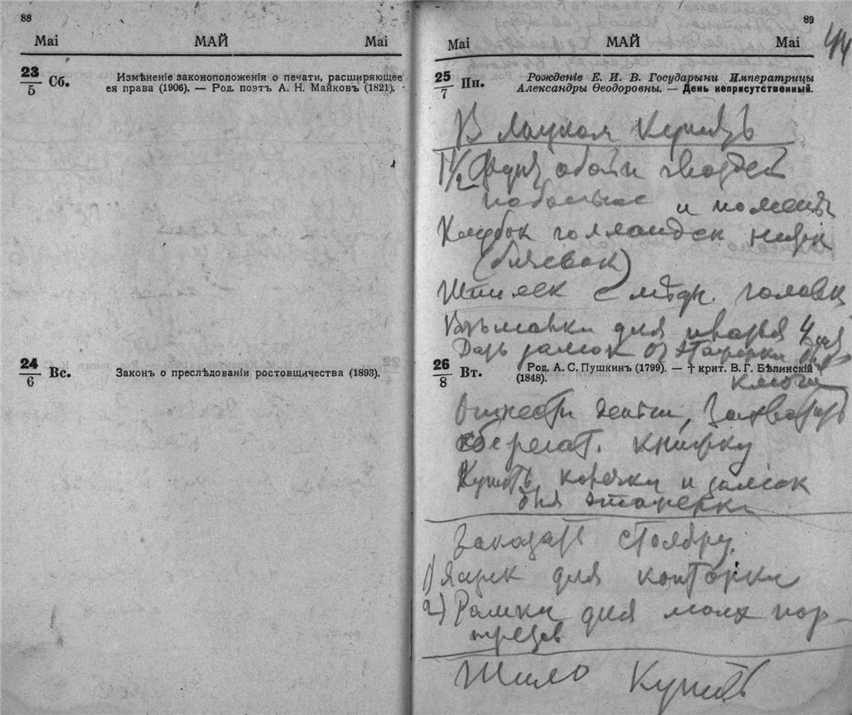 88
Mai МАЙ Mai
23/5 Сб. Измѣненіе законоположенія о печати, расширяющее
ея права (1906). — Род. поэтъ А. Н. Майковъ (1821).
24/6 Вс. Законъ о преслѣдованіи ростовщичества (1893).
89
Mai МАЙ Mai
44
25/7 Пн. Рожденіе Е. И. В. Государыни Императрицы
Александры Ѳеодоровны. — День неприсутственный.
В Купить
1 1/2 фун обойн гвоздей
и помень
Клубок голландск
Шпилек с мѣдн. головк
для 4 для
Дать замок от этажерки
26/8 Вт. Род. А. С. Пушкинъ (1799). — † крит. В. Г. Бѣлинскій
(1848).
ключи
Отнести деньги, Захватить
сберегат. книжку
Купить и замок
для этажерки
Заказать столяру.
1) Ящик для конторки
2) Рамки для моих пор-
третов
Шило Купить